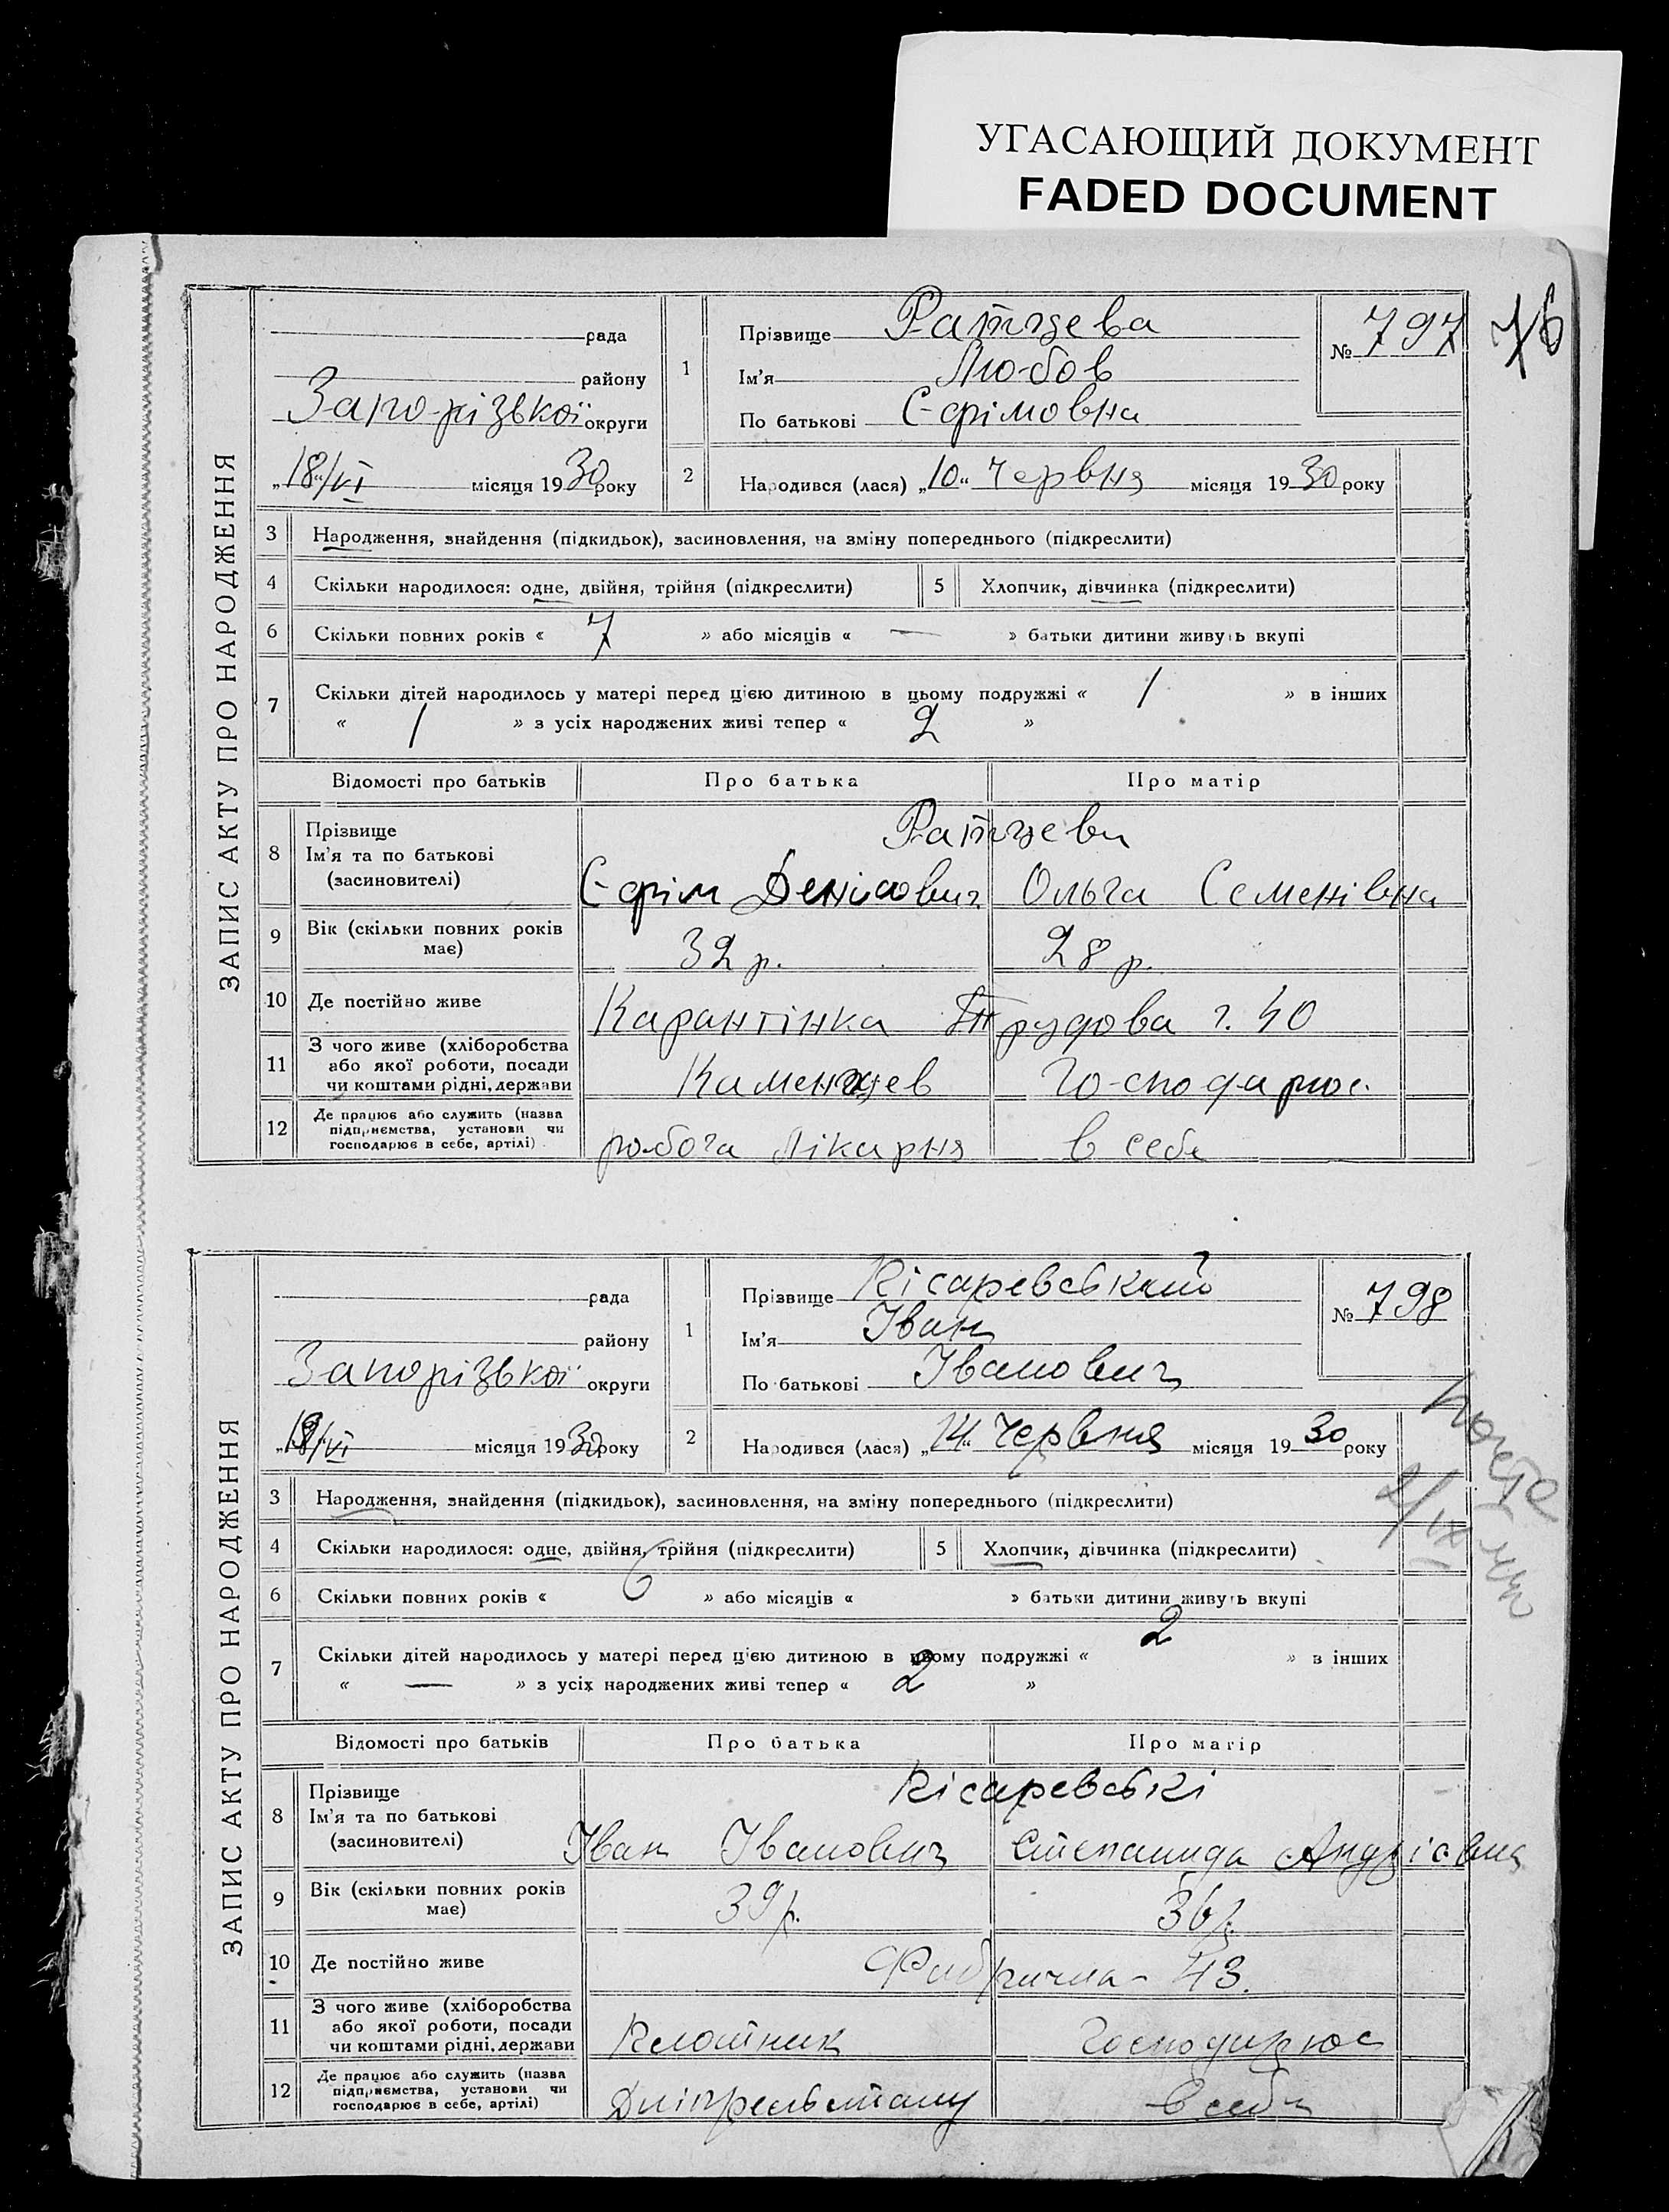 УГАСАЮЩИЙ ДОКУМЕНТ
FADED DOCUMENT
ЗАПИС АКТУ ПРО НАРОДЖЕННЯ
рада
району
Запорізької округи
„18“/VI місяця 1930 року
1
Прізвище Ратцева
Ім'я Любов
По батькові Єфімовна
№ 797
76
2 Народився (лася) „10“ Червня місяця 1930 року
3 Народження, знайдення (підкидьок), засиновлення, на зміну попереднього (підкреслити)
4 Скільки народилося: одне, двійня, трійня (підкреслити) 5 Хлопчик, дівчинка (підкреслити)
6 Скільки повних років « 7 » або місяців « — » батьки дитини живуть вкупі
7 Скільки дітей народилось у матері перед цією дитиною в цьому подружжі « 1 » в інших
« 1 » з усіх народжених живі тепер « 2 »
Відомості про батьків Про батька Про матір
8 Прізвище
Ім'я та по батькові
(засиновителі)
Ратцеви
Єфім Денісович Ольга Семенівна
9 Вік (скільки повних років має) 32 р. 28 р.
10 Де постійно живе Карантінка Трудова 40
11 З чого живе (хліборобства
або якої роботи, посади
чи коштами рідні, держави
Господарює
12 Де працює або служить (назва
підприємства, установи чи
господарює в себе, артілі)
робоча лікарня в себе
ЗАПИС АКТУ ПРО НАРОДЖЕННЯ
рада
району
Запорізької округи
/VI місяця 1930 року
1
Прізвище Кісаревський
Ім'я Іван
По батькові Іванович
№ 798
2 Народився (лася) „14“ Червня місяця 1930 року
3 Народження, знайдення (підкидьок), засиновлення, на зміну попереднього (підкреслити)
4 Скільки народилося: одне, двійня, трійня (підкреслити) 5 Хлопчик, дівчинка (підкреслити)
6 Скільки повних років « 6 » або місяців « » батьки дитини живуть вкупі
7 Скільки дітей народилось у матері перед цією дитиною в цьому подружжі « 2 » в інших
« — » з усіх народжених живі тепер « 2 »
Відомості про батьків Про батька Про матір
8 Прізвище
Ім'я та по батькові
(засиновителі)
Кісаревські
Іван Іванович Степанида Андріївна
9 Вік (скільки повних років має) 39 р. 36 р.
10 Де постійно живе Фабрична - 43.
11 З чого живе (хліборобства
або якої роботи, посади
чи коштами рідні, держави
Господарює
12 Де працює або служить (назва
підприємства, установи чи
господарює в себе, артілі)
в себе